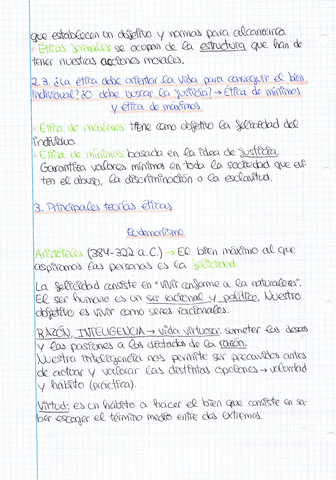 que establecen un objetivo y normas para alcanzarlo.
· Éticas formales se ocupan de la estructura que han de
tener nuestras acciones morales.
2.3. ¿La ética debe orientar la vida para conseguir el bien
individual? ¿O debe buscar la justicia? → Ética de mínimos
y ética de máximos.
· Ética de máximos: tiene como objetivo la felicidad del
individuo.
· Ética de mínimos: basada en la idea de justicia.
Garantiza valores mínimos en toda la sociedad que evi-
ten el abuso, la discriminación o la esclavitud.
3. Principales teorías éticas
Eudemonismo
Aristóteles (384-322 a.C.) → El bien máximo al que
aspiramos las personas es la felicidad.
La felicidad consiste en "vivir conforme a la naturaleza".
El ser humano es un ser racional y político. Nuestro
objetivo es vivir como seres racionales.
RAZÓN, INTELIGENCIA → vida virtuosa: someter los deseos
y las pasiones a los dictados de la razón.
Nuestra inteligencia nos permite ser precavidos antes
de actuar y valorar las distintas opciones → voluntad
y hábito (práctica).
Virtud: es un hábito a hacer el bien que consiste en sa-
ber escoger el término medio entre dos extremos.